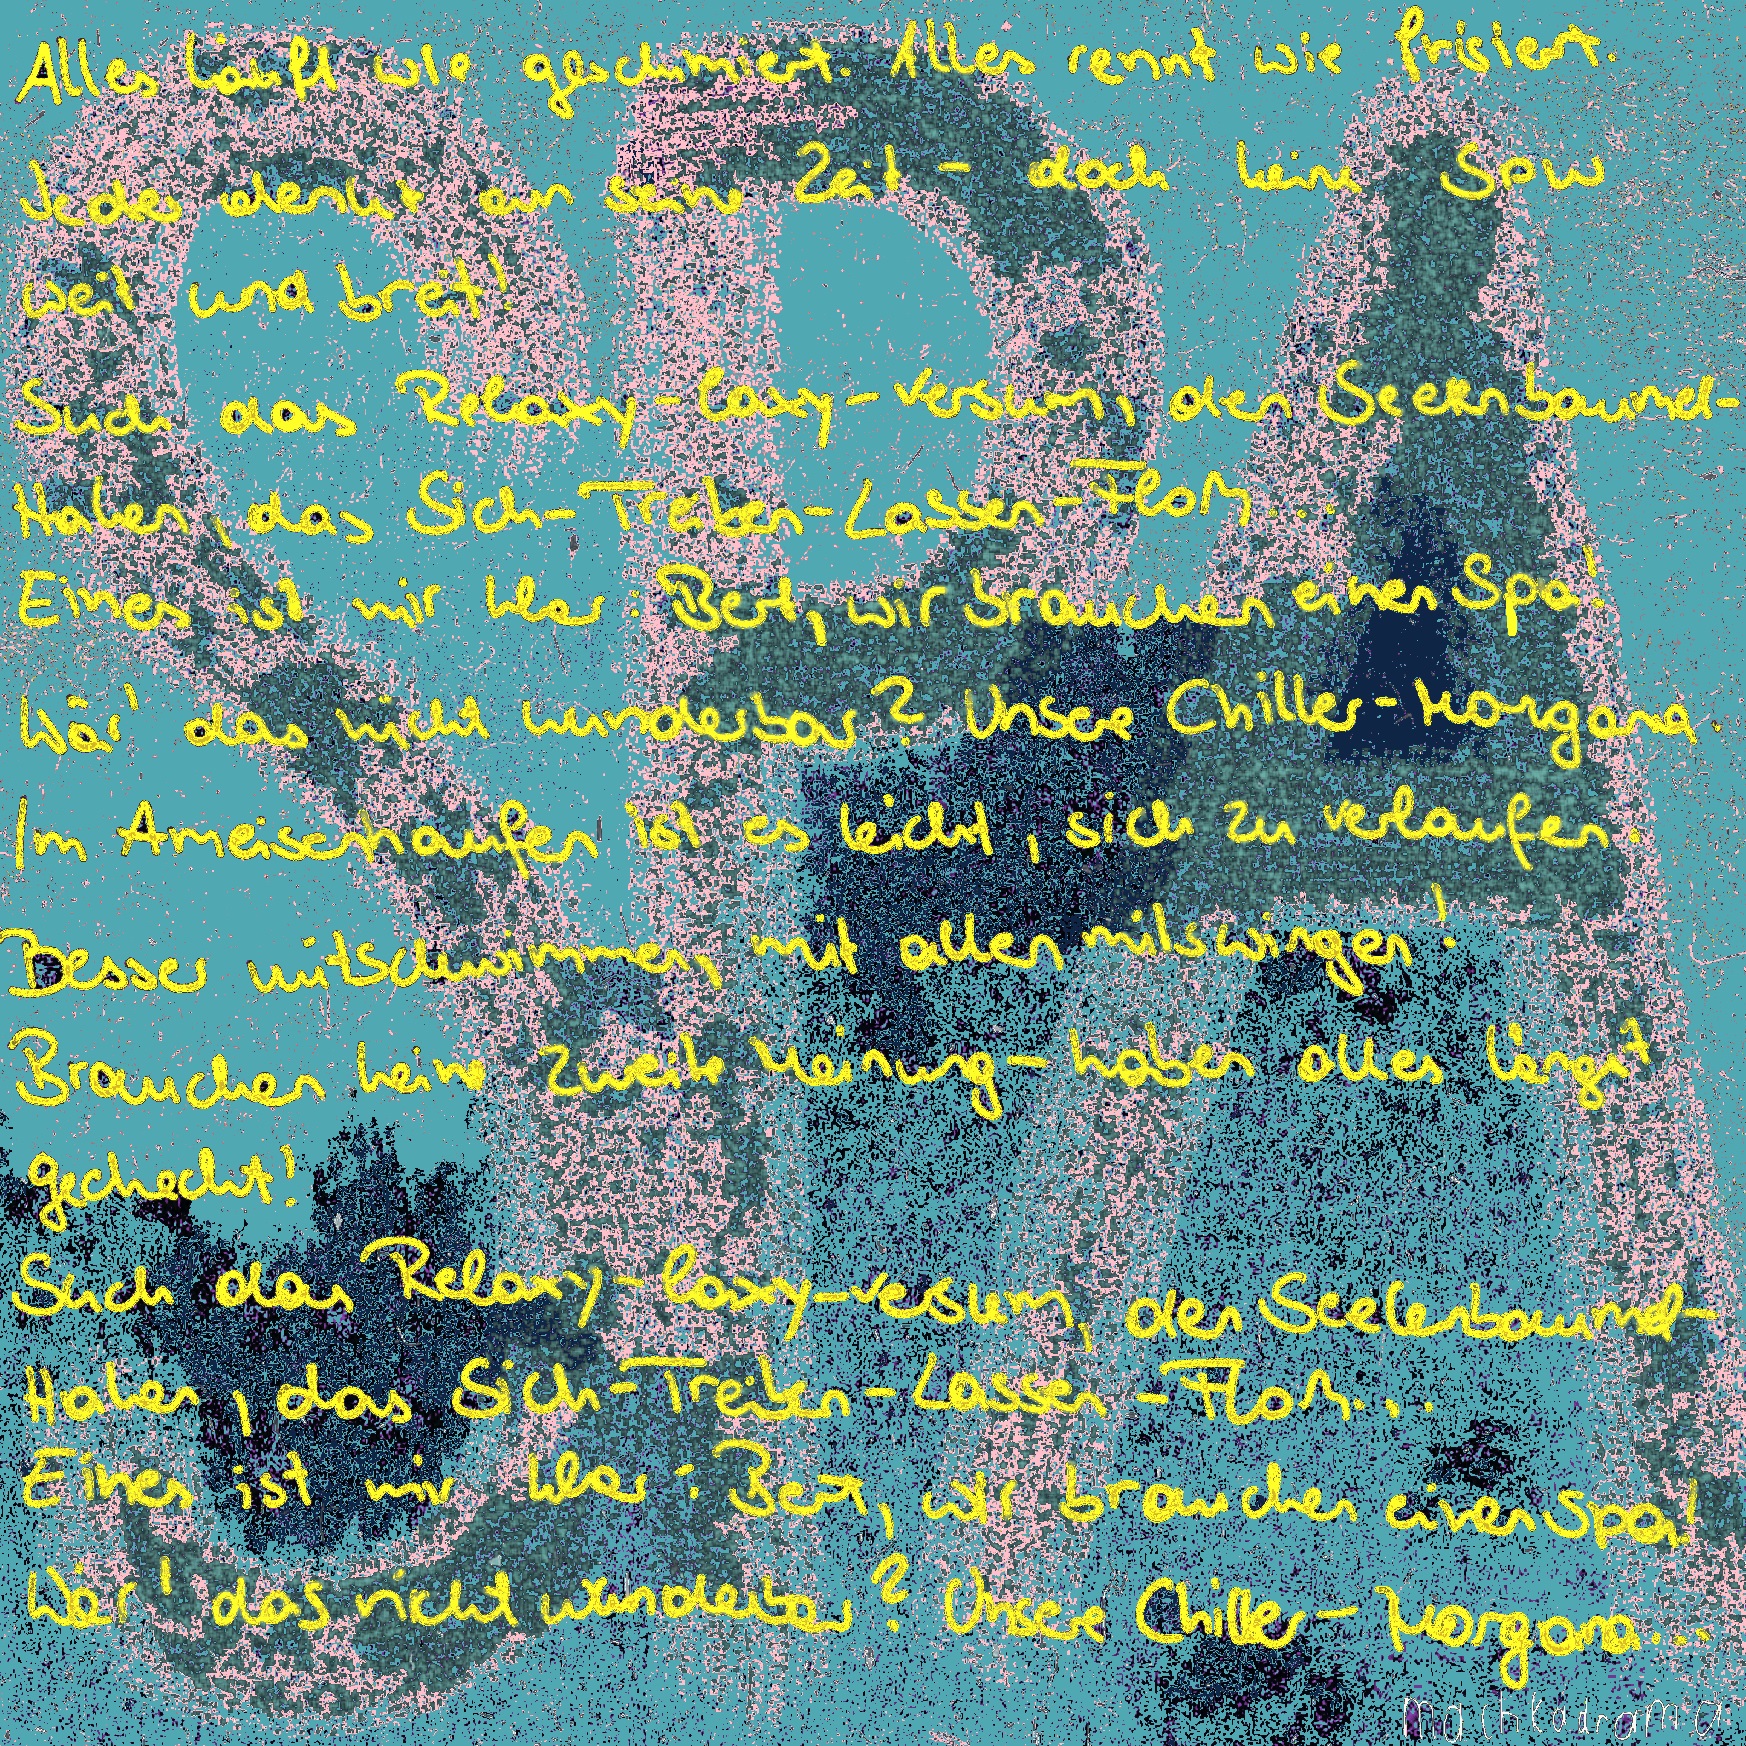 Alles läuft wie geschmiert. Alles rennt wie frisiert.
Jeder denkt an seine Zeit - doch keine Spur
weit und breit!
Such das Relaxy-laxy-versum, den Seelenbaumel-
Hafen, das Sich-Treiben-Lassen-Floß...
Eines ist mir klar: Bert, wir brauchen einen Spa!
Wär' das nicht wunderbar? Unsere Chiller-Morgana.
Im Ameisenhaufen ist es leicht, sich zu verlaufen.
Besser mitschwimmen, mit allen mitswingen!
Brauchen keine zweite Meinung - haben alles längst
gecheckt!
Such das Relaxy-laxy-versum, den Seelenbaumel-
Hafen, das Sich-Treiben-Lassen-Floß...
Eines ist mir klar: Bert, wir brauchen einen Spa!
Wär' das nicht wunderbar? Unsere Chiller-Morgana...
machkadrama
SPA